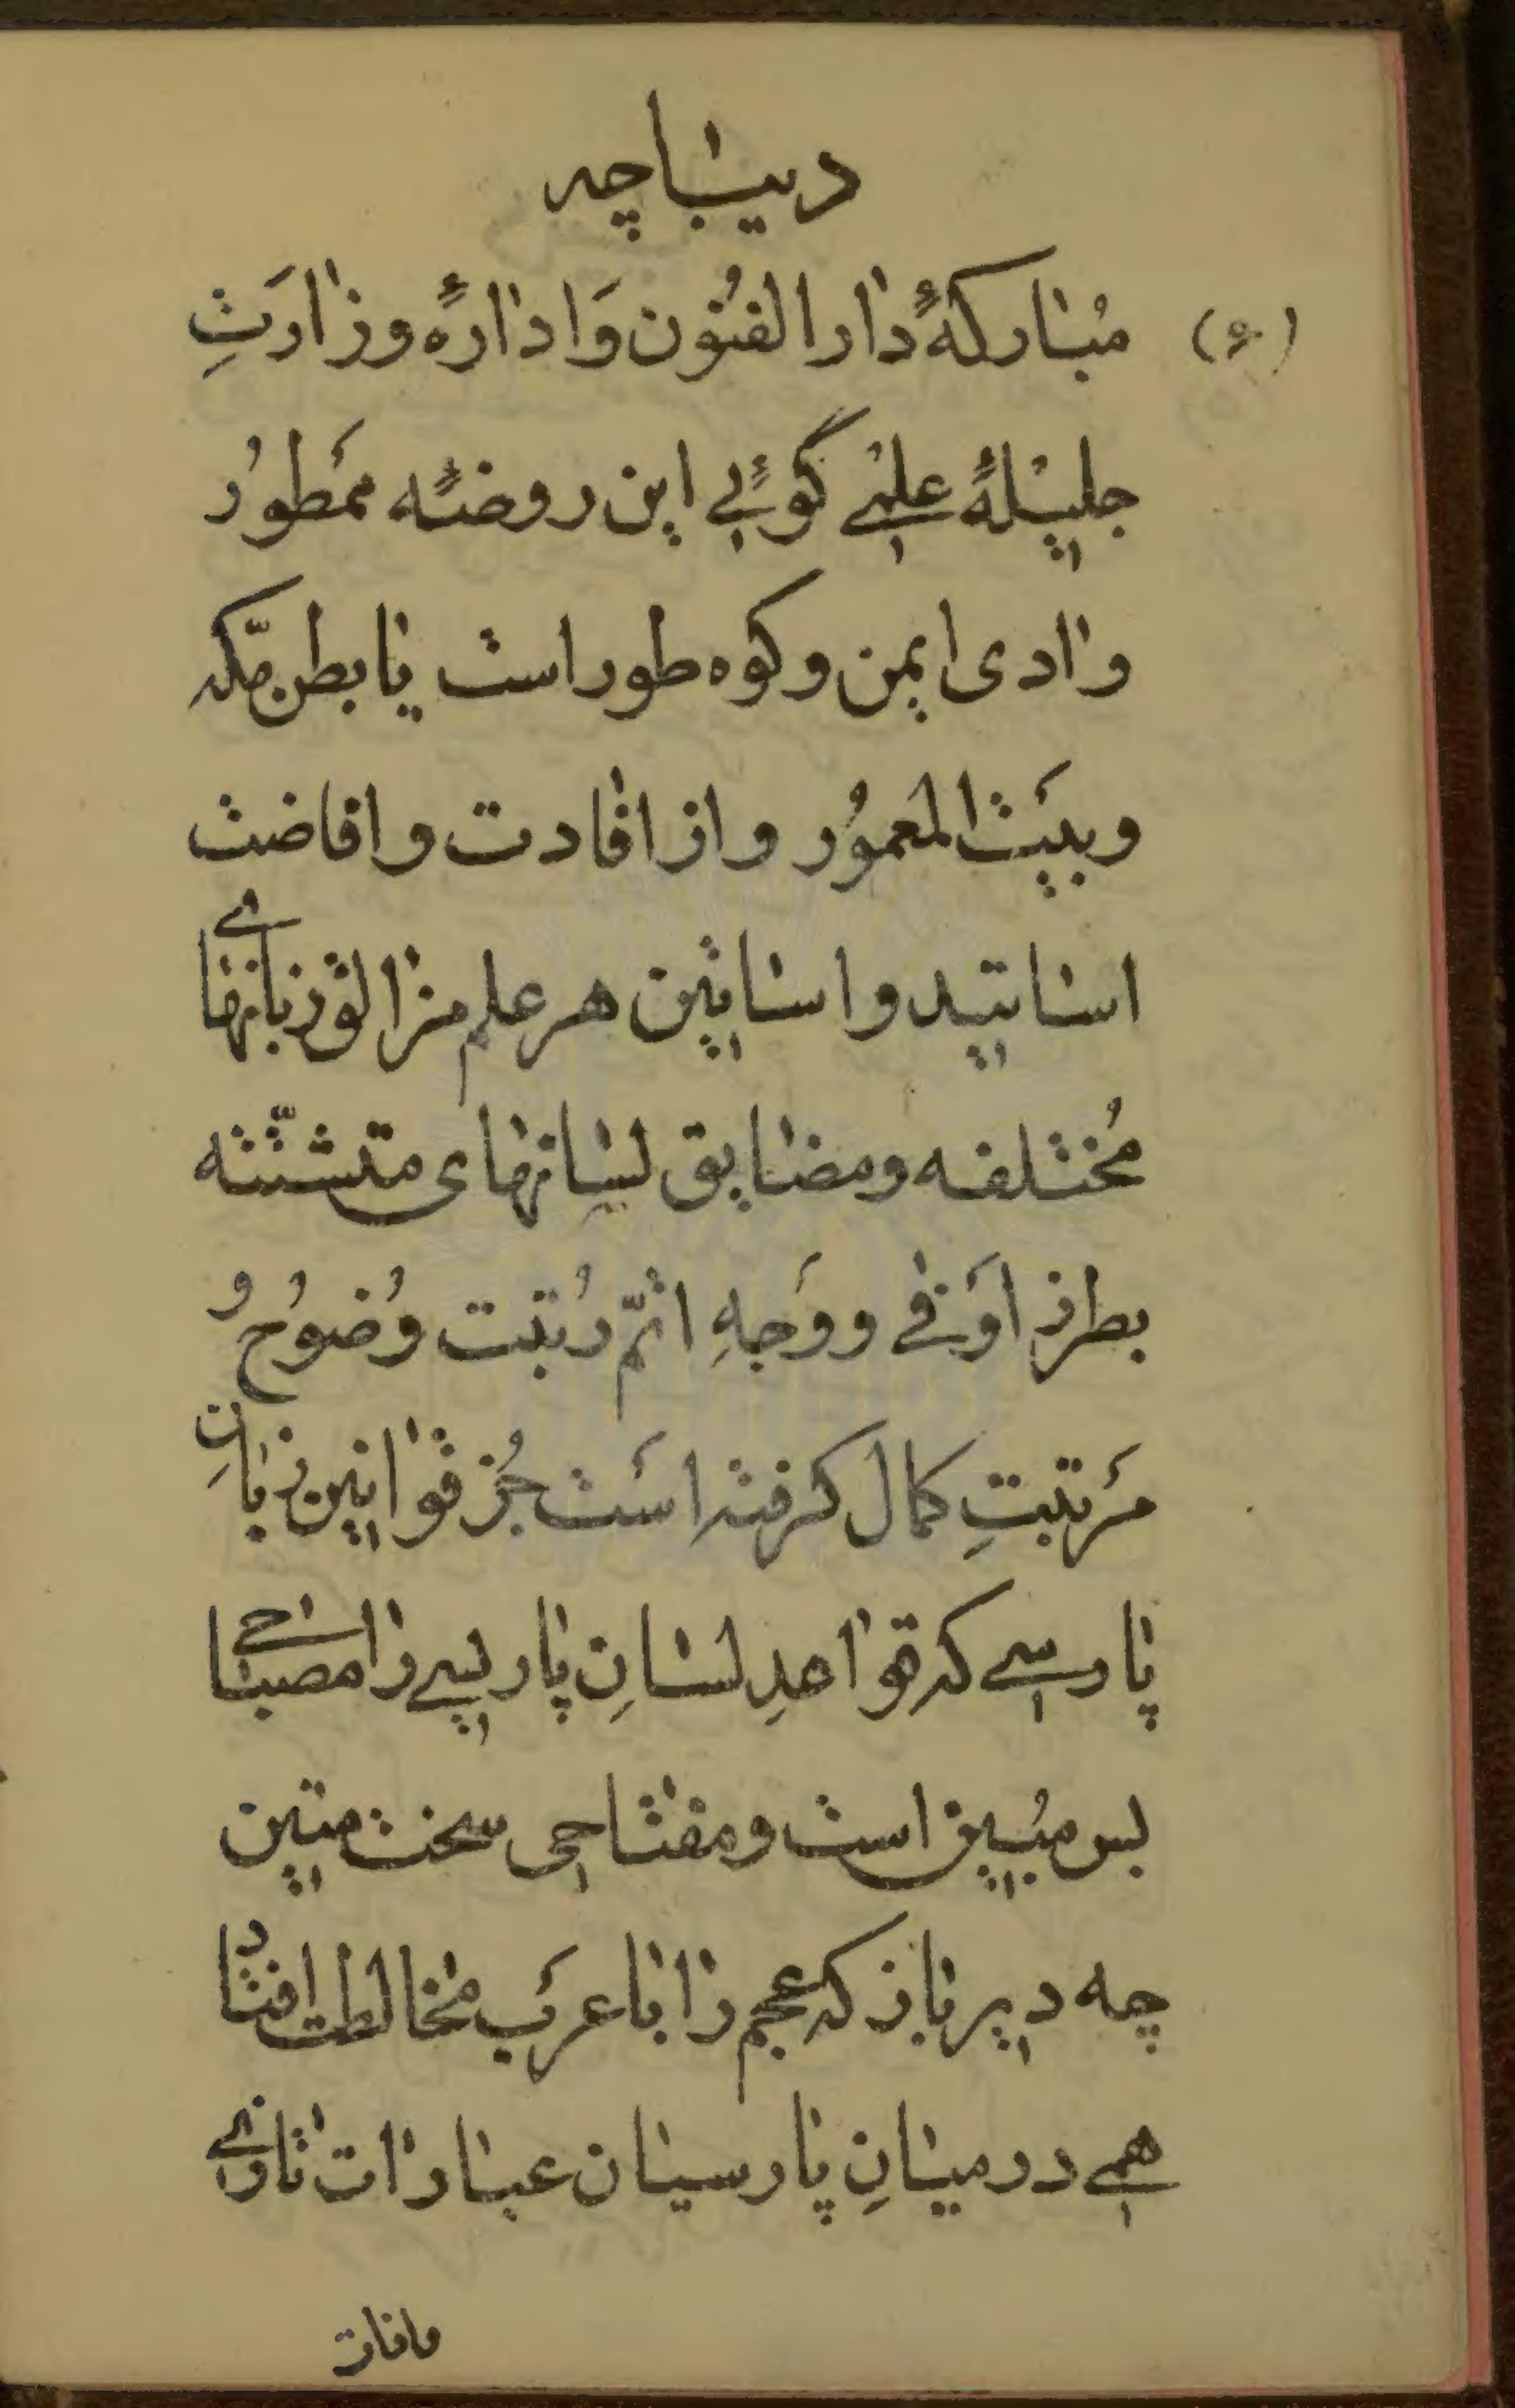 دیباچه
(۶) مُبارکهٔ دارالفنُون وَادارهٔ وزارَتِ
جلیلهٔ علمے گوئے این روضهٔ ممَطورُ
وادی ایمن وکوه طوراست یا بطن مکّه
وبیَت المعموُر واز افادت وافاضت
اساتید واساتین هر علم مزالق زبانهاے
مُختلفه ومضایق لِسانهای متشتّته
بطرز اوَفے ووَجهِ اتمّ رُتبت وُضوُح و
مَرتبتِ کمال گرفته است جُز قوانین زبانِ
پارسے که قواعدِ لسانِ پارسے را مصباحے
بس مبُین است ومفتاحی سخت متین
چه دیرباز که عجم را با عرَب مخالطت افتاد
همے در میانِ پارسیان عبارات تازے